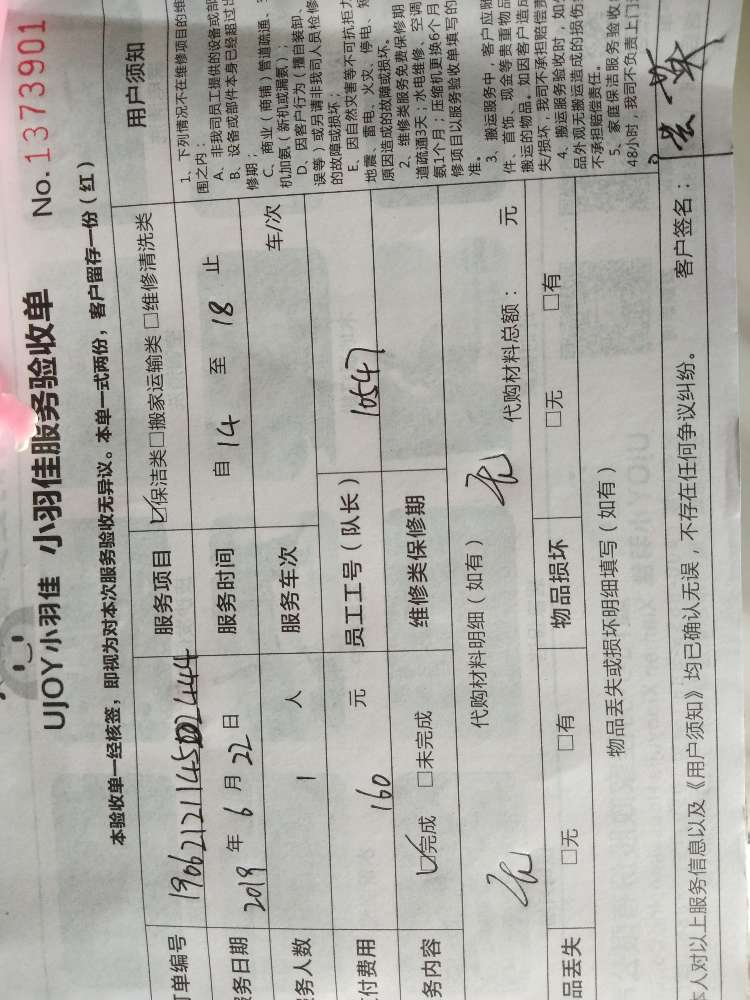 UJOY小羽佳 小羽佳服务验收单 No.1373901
本验收单一经核签，即视为对本次服务验收无异议。本单一式两份，客户留存一份（红）
订单编号
服务项目 ☑保洁类□搬家运输类 □维修清洗类
服务日期 2019 年 6 月 22 日 服务时间 自 14 至 18 止
务人数 1 人 服务车次 车/次
付费用 160 元 员工工号（队长） 10547
务内容 ☑完成 □未完成 维修类保修期
代购材料明细（如有） 无 代购材料总额： 元
无
品丢失 □无 □有 物品损坏 □无 □有
物品丢失或损坏明细填写（如有）
用户须知
1、下列情况不在维修项目的维
围之内：
A、非我司员工提供的设备或部
B、设备或部件本身已经超过
修期；
C、商业（商铺）管道疏通、
机加氨（新机或漏氨）；
D、因客户行为（擅自装卸、
误等）或另请非我司人员检修
的故障或损坏；
E、因自然灾害等不可抗拒力
地震、雷电、火灾、停电、
原因造成的故障或损坏。
2、维修类服务免费保修期
道疏通3天；水电维修、空调
氨1个月；压缩机更换6个月
修项目以服务验收单填写的
准。
3、搬运服务中，客户应
件、首饰、现金等贵重物品
搬运的物品。如因客户造成
失/损坏，我司不承担赔偿责
4、搬运服务验收时，如
品外观无搬运造成的损伤
不承担赔偿责任。
5、家庭保洁服务验收
48小时，我司不负责上门
本人对以上服务信息以及《用户须知》均已确认无误，不存在任何争议纠纷。 客户签名：